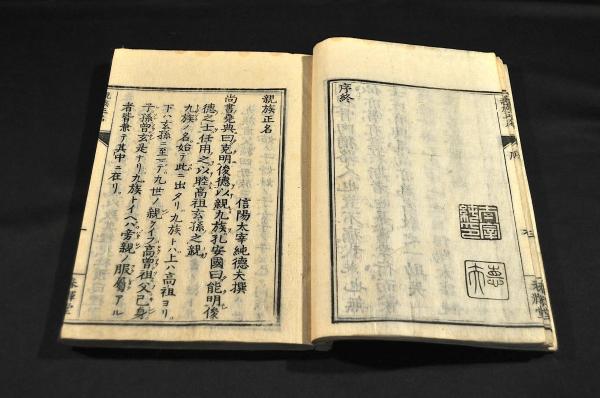 序終
太宰純印
德夫
親族正名
信陽太宰純德夫撰
尚書堯典曰克明俊德以親九族孔安國曰能明俊
德之士任用之以睦高祖玄孫之親
九族ノ名始テ此ニ出タリ九族トハ上ハ高祖ヨリ
下ハ玄孫ニ至マデ九世ノ親ヲイフ高曾祖父己身
子孫曾玄是ナリ九族トイヘバ旁親ノ服屬アル
者皆兼テ其中ニ在リ